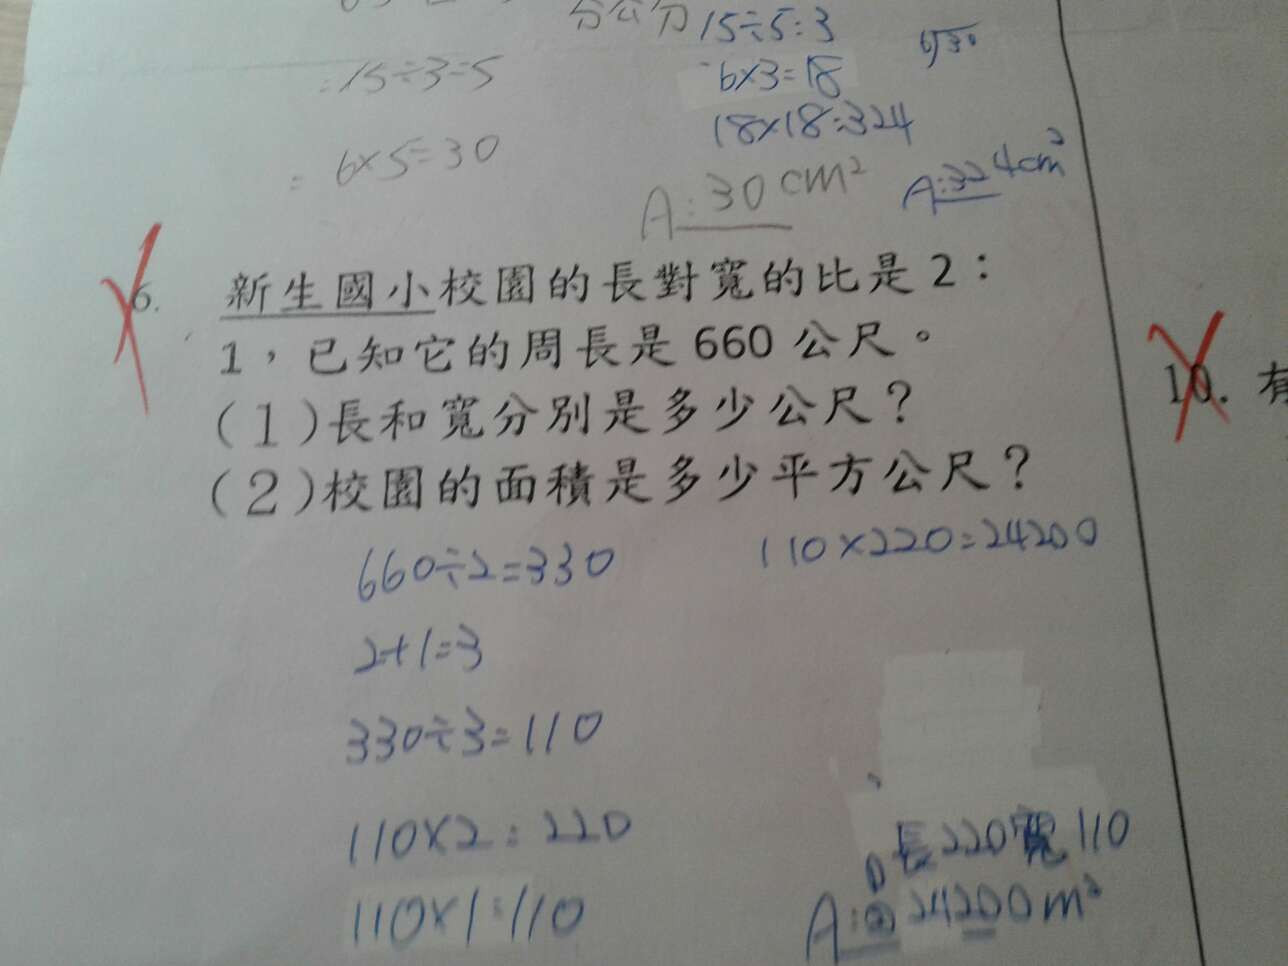 分公分
15÷5=3
=15÷3=5
6×3=18
18×18=324
=6×5=30
A:30cm²
A:324cm²
6. 新生國小校園的長對寬的比是2：
1，已知它的周長是660公尺。
(1)長和寬分別是多少公尺？
(2)校園的面積是多少平方公尺？
10. 有
660÷2=330
110×220=24200
2+1=3
330÷3=110
110×2=220
110×1=110
①長220寬110
A:②24200m²